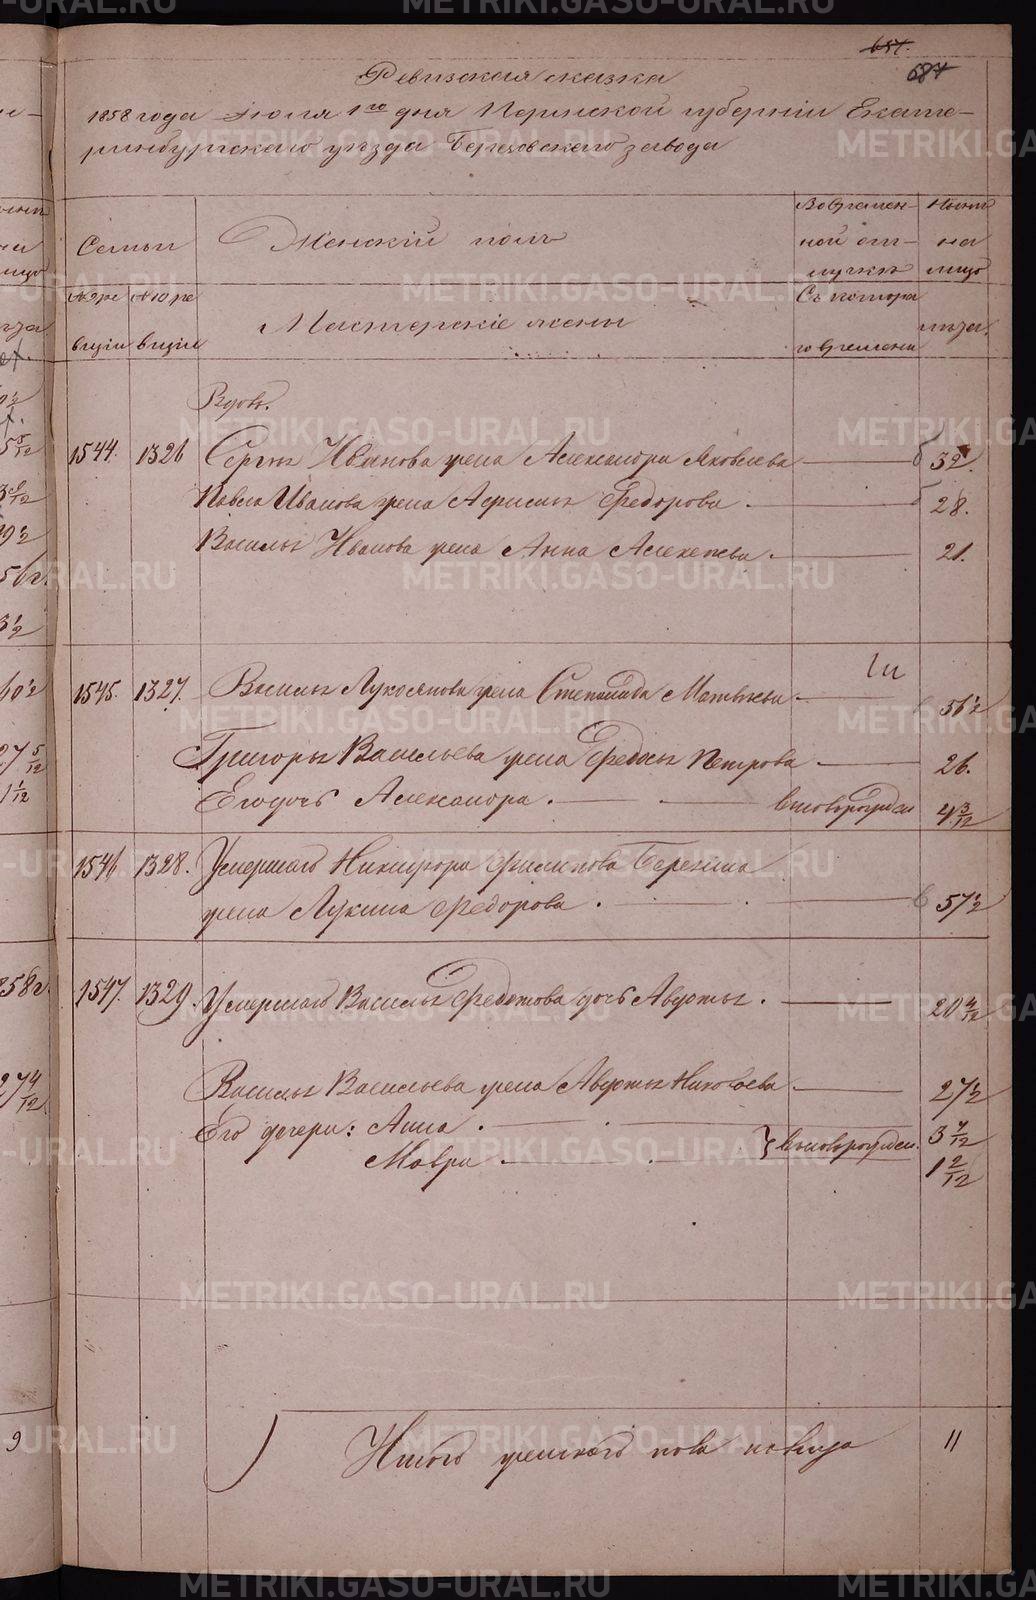 METRIKI.GASO-URAL.RU
657.
687
Ревизская сказка
1858 года Июля 1го дня Пермской губернии Екате-
ринбургского уезда Березовского завода
Семьи
Женский полъ
Во времен-
ной от-
лучке
Ныне
на
лицо
№ по ре
визии
Мастерские жены
Съ котора
го времени
лета.
Вдов.
1544. 1326 Сергея Иванова жена Александра Яковлева 32.
Павла Иванова жена Федорова. 28.
Василья Иванова жена Анна Алексеева. 21.
1545. 1327. Василья Лукоянова жена Степанида Матвеева 56½
Григорья Васильева жена Федосья Петрова 26.
Его дочь Александра. вновьрожден 4 3/12
1546 1328. Умершаго Никифора Филипова Березина
жена Лукина Федорова. 57½
1547. 1329. Умершаго Василья Федотова дочь Авдотья. 20 4/12
Василья Васильева жена Авдотья Николаева 27½
Его дочери: Анна
Мавра
вновьрожден.
3 7/12
1 2/12
Итого женского пола налицо 11